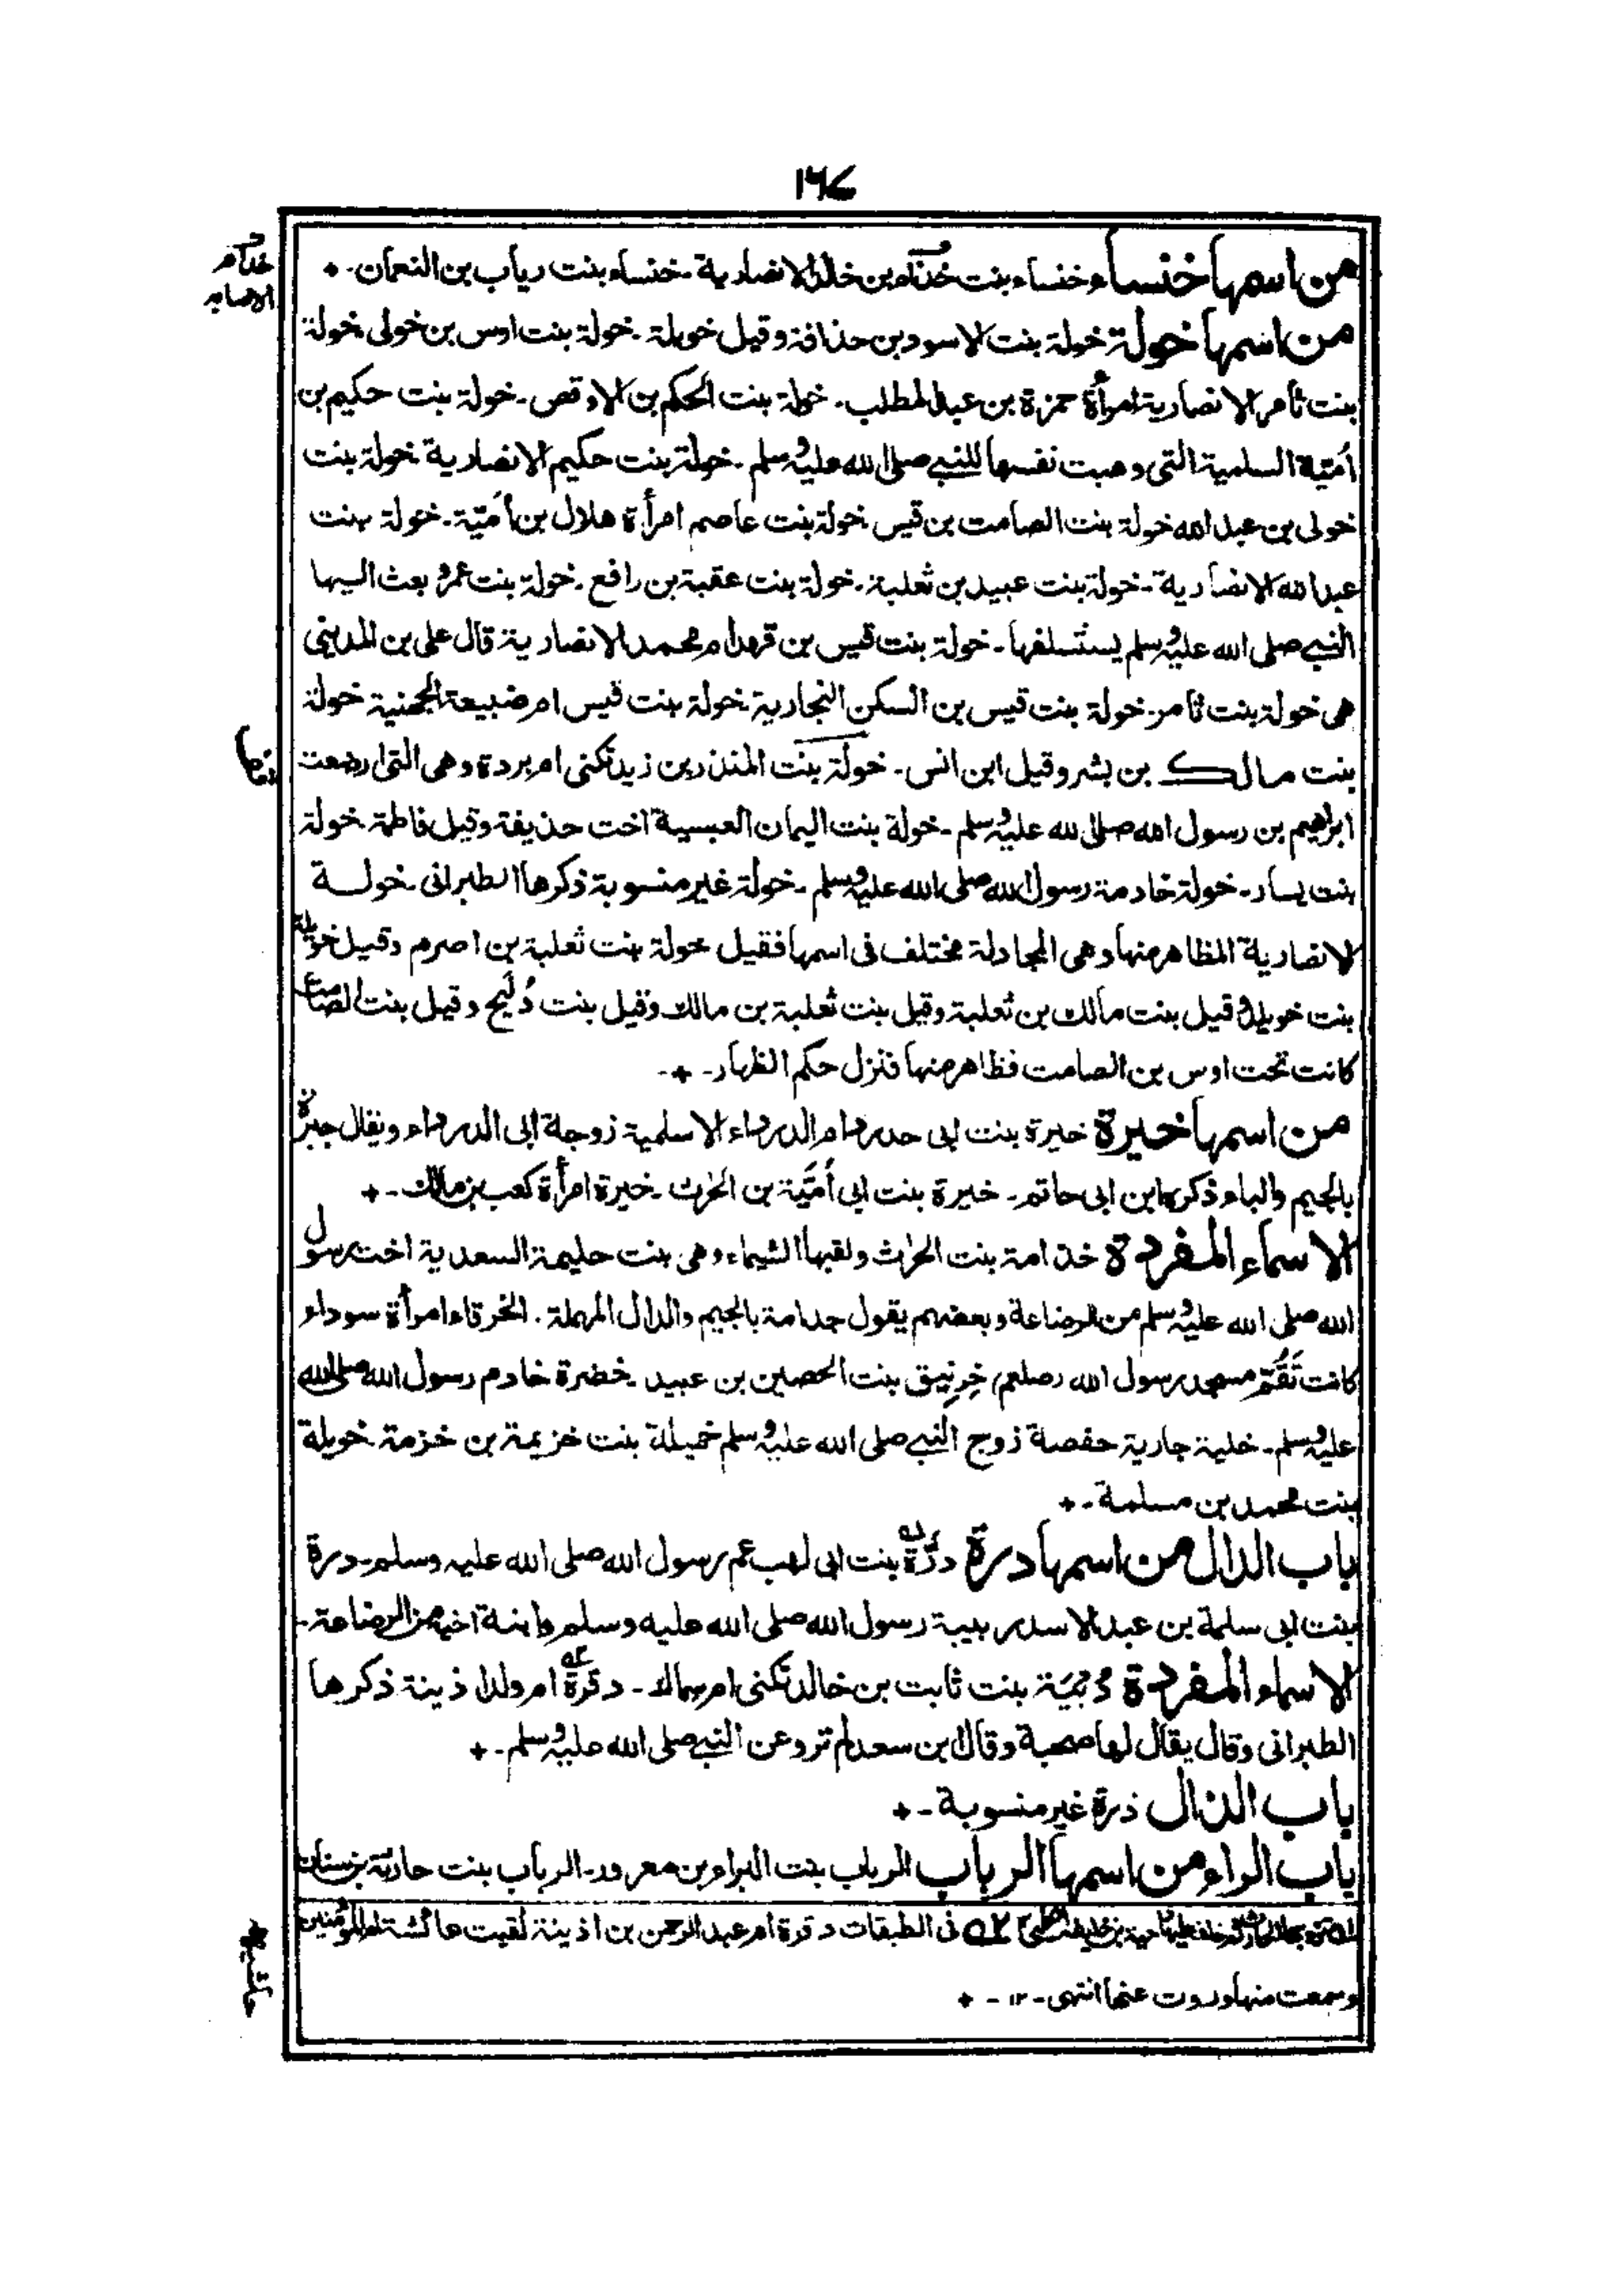 ۱۶۷
من اسمها خنساء خنساء بنت خذام بن خالد الانصارية ـ خنساء بنت رياب بن النعمان ـ
خذام
الاصابه
من اسمها خولة خولة بنت الاسود بن حذافة وقيل خويلة ـ خولة بنت اوس بن خولى خولة
بنت ثامر الانصارية امرأة حمزة بن عبد المطلب ـ خولة بنت الحكم بن الاوقص ـ خولة بنت حكيم بن
أميّة السلمية التى وهبت نفسها للنبي صلى الله عليه وسلم ـ خولة بنت حكيم الانصارية خولة بنت
خولى بن عبد الله خولة بنت الصامت بن قيس خولة بنت عاصم امرأة هلال بن أميّة ـ خولة بنت
عبد الله الانصارية ـ خولة بنت عبيد بن ثعلبة ـ خولة بنت عقبة بن رافع ـ خولة بنت عمرو بعث اليها
النبي صلى الله عليه وسلم يستسلفها ـ خولة بنت قيس بن قهد ام محمد الانصارية قال على بن المدينى
هى خولة بنت ثامر ـ خولة بنت قيس بن السكن النجارية خولة بنت قيس ام ضبيعة الجهنية خولة
بنت مالك بن بشر وقيل ابن انس ـ خولة بنت المنذر بن زيد تكنى ام بردة وهى التى ارضعت
ابراهيم بن رسول الله صلى الله عليه وسلم ـ خولة بنت اليمان العبسية اخت حذيفة وقيل فاطمة خولة
بنت يسار ـ خولة خادمة رسول الله صلى الله عليه وسلم ـ خولة غير منسوبة ذكرها الطبرانى ـ خولة
الانصارية المظاهر منها وهى المجادلة مختلف فى اسمها فقيل خولة بنت ثعلبة بن اصرم وقيل خويلة
بنت خويلد وقيل بنت مالك بن ثعلبة وقيل بنت ثعلبة بن مالك وقيل بنت دُلَيج وقيل بنت الصامت
كانت تحت اوس بن الصامت فظاهر منها فنزل حكم الظهار ـ
من اسمها خيرة خيرة بنت ابى حدرد ام الدرداء الاسلمية زوجة ابى الدرداء ويقال جبرة
بالجيم والباء ذكره ابن ابى حاتم ـ خيرة بنت ابى أميّة بن الحرث ـ خيرة امرأة كعب بن مالك ـ
الاسماء المفردة خذامة بنت الحارث ولقبها الشيماء وهى بنت حليمة السعدية اخت رسول
الله صلى الله عليه وسلم من الرضاعة وبعضهم يقول جدامة بالجيم والدال المهملة . الخرقاء امرأة سوداء
كانت تَقُمّ مسجد رسول الله (صلعم) خِرنِيق بنت الحصين بن عبيد ـ خضرة خادم رسول الله صلى الله
عليه وسلم ـ خلية جارية حفصة زوج النبي صلى الله عليه وسلم خميلة بنت خزيمة بن خزمة خويلة
بنت محمد بن مسلمة ـ
باب الدال من اسمها درة درّة بنت ابى لهب عم رسول الله صلى الله عليه وسلم ـ درة
بنت ابى سلمة بن عبد الاسد ربيبة رسول الله صلى الله عليه وسلم وابنة اخيه من الرضاعة ـ
الاسماء المفردة دُبَيّة بنت ثابت بن خالد تكنى ام سماك ـ دقرة ام ولد اذينة ذكرها
الطبرانى وقال يقال لها صحبة وقال ابن سعد لم ترو عن النبي صلى الله عليه وسلم ـ
باب الذال ذرة غير منسوبة ـ
باب الراء من اسمها الرباب الرباب بنت البراء بن معرور ـ الرباب بنت حارثة بن سنان
فى الطبقات دقرة ام عبد الرحمن بن اذينة لقيت عائشة ام المؤمنين
وسمعت منها وروت عنها انتهى ـ ۱۲ ـ
حاشيه